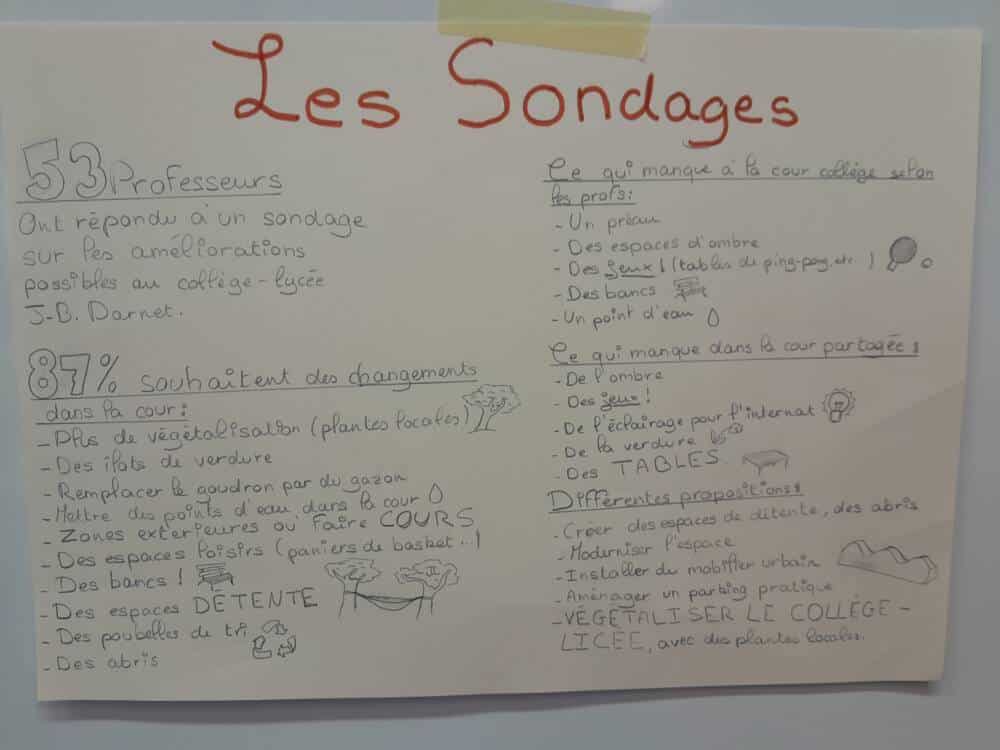 Les Sondages
53 Professeurs
Ont répondu à un sondage
sur les améliorations
possibles au collège-lycée
J-B. Darnet.
87% souhaitent des changements
dans la cour :
- Plus de végétalisation (plantes locales)
- Des îlots de verdure
- Remplacer le goudron par du gazon
- Mettre des points d'eau dans la cour
- Zones extérieures où faire COURS
- Des espaces loisirs (paniers de basket ...)
- Des bancs !
- Des espaces DÉTENTE
- Des poubelles de tri
- Des abris
Ce qui manque à la cour collège selon
les profs :
- Un préau
- Des espaces d'ombre
- Des jeux ! (tables de ping-pong, etc.)
- Des bancs
- Un point d'eau
Ce qui manque dans la cour partagée :
- De l'ombre
- Des jeux !
- De l'éclairage pour l'internat
- De la verdure
- Des TABLES
Différentes propositions :
- Créer des espaces de détente, des abris
- Moderniser l'espace
- Installer du mobilier urbain
- Aménager un parking pratique
- VÉGÉTALISER LE COLLÈGE -
LICÉE, avec des plantes locales.